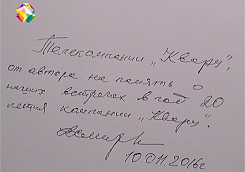 Телекомпании „Кварц",
от автора на память о
наших встречах в год 20
летия компании „Кварц".
10.01.2016г